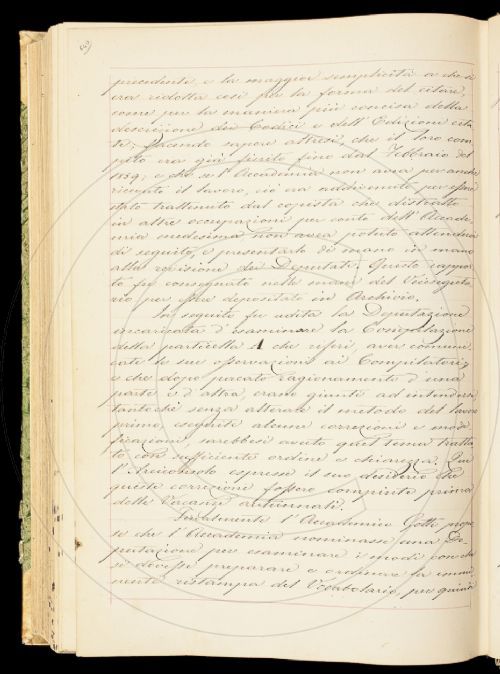 precedente, e la maggior semplicità a che si
era ridotta così per la forma del citare,
come per la maniera più concisa della
descrizione dei Codici e dell'Edizioni cita-
te; facendo sapere altresì, che il loro com-
pito era già finito fino dal Febbraio del
1839; e che se l'Accademia non avea per anche
ricevuto il lavoro, ciò era addivenuto per essere
stato trattenuto dal copista che distratto
in altre occupazioni per conto dell'Accade-
mia medesima non avea potuto attendervi
di seguito, e presentarlo di mano in mano
alla revisione dei Deputati. Questo rappor-
to fu consegnato nelle mani del Vicesegreta-
rio per esser depositato in Archivio.
In seguito fu udita la Deputazione
incaricata d'esaminare la Compilazione
della particella A che riferì aver comuni-
cate le sue osservazioni ai Compilatori;
e che dopo pacato ragionamento d'una
parte e d'altra, erano giunti ad intendersi
tantoché senza alterare il metodo del lavoro
primo, eseguite alcune correzioni e modi-
ficazioni, sarebbesi avuto quel tema tratta-
to con sufficiente ordine e chiarezza. Qui
l'Arciconsolo espresse il suo desiderio che
queste correzioni fossero compiute prima
delle Vacanze autunnali.
Finalmente l'Accademico Gotti propo-
se che l'Accademia nominasse una De-
putazione per esaminare i modi con che
si dovesse preparare e ordinare la immi-
nente ristampa del Vocabolario, per quindi